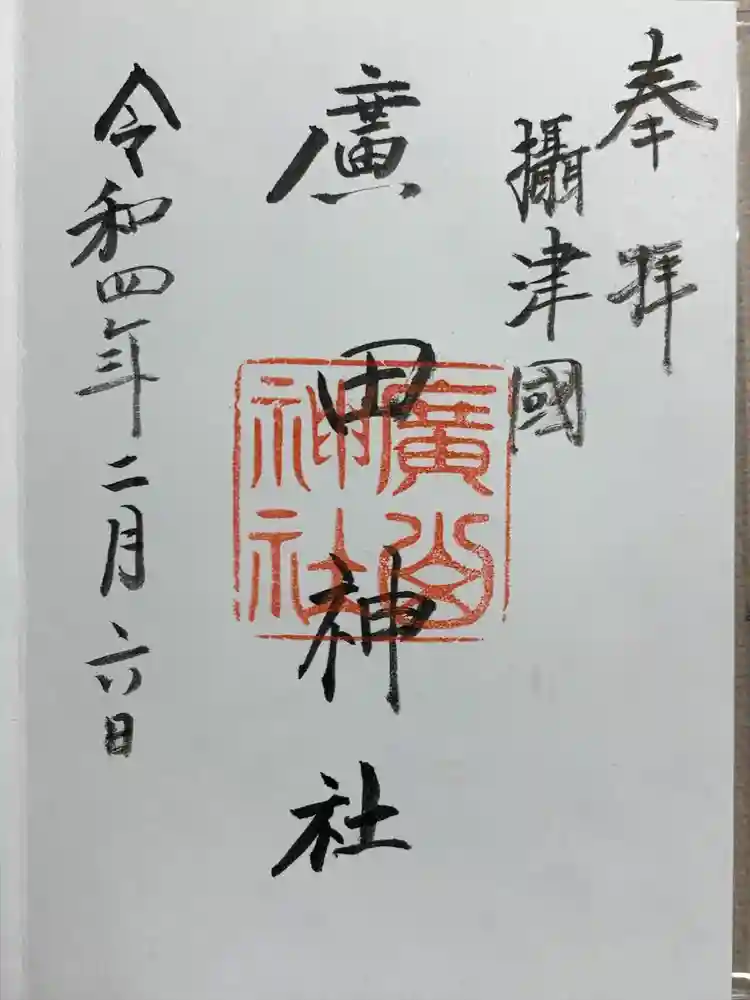 奉拝
攝津國
廣田神社
令和四年二月六日